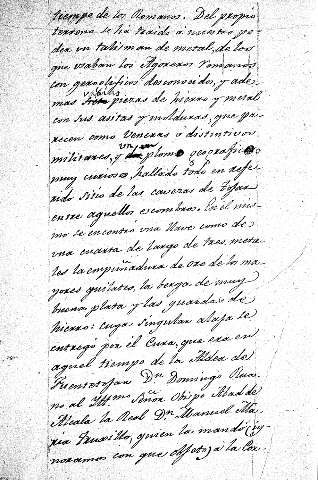 tiempo de los Romanos. Del propio
terreno se ha traido á nuestro po-
der un talisman de metal, de los
que usaban los Agoreros romanos
con geroglificos desconocidos, y ade-
mas varias piezas de hierro y metal
con sus asitas y molduras, que pa-
recen como Veneras ó distintivos
militares, y un plomo geografico
muy curioso, hallado todo en refe-
rido sitio de las cavezas de Tojar
entre aquellos escombros. En él mis-
mo se encontró una llave como de
una cuarta de largo de tres meta-
les la empuñadura de oro de los ma-
yores quilates, la berga de muy
buena plata y las guardas de
hierro: cuya singular alaja le
entregó por él Cura, que era en
aquel tiempo de la Aldea de
Fuentetojar Dn. Domingo
no al Yllmo. Señor Obispo Abad de
Alcala la Real Dn. Manuel Ma-
ria Truxillo, quien la mandó (ig-
noramos con que obgeto) a la Cor-